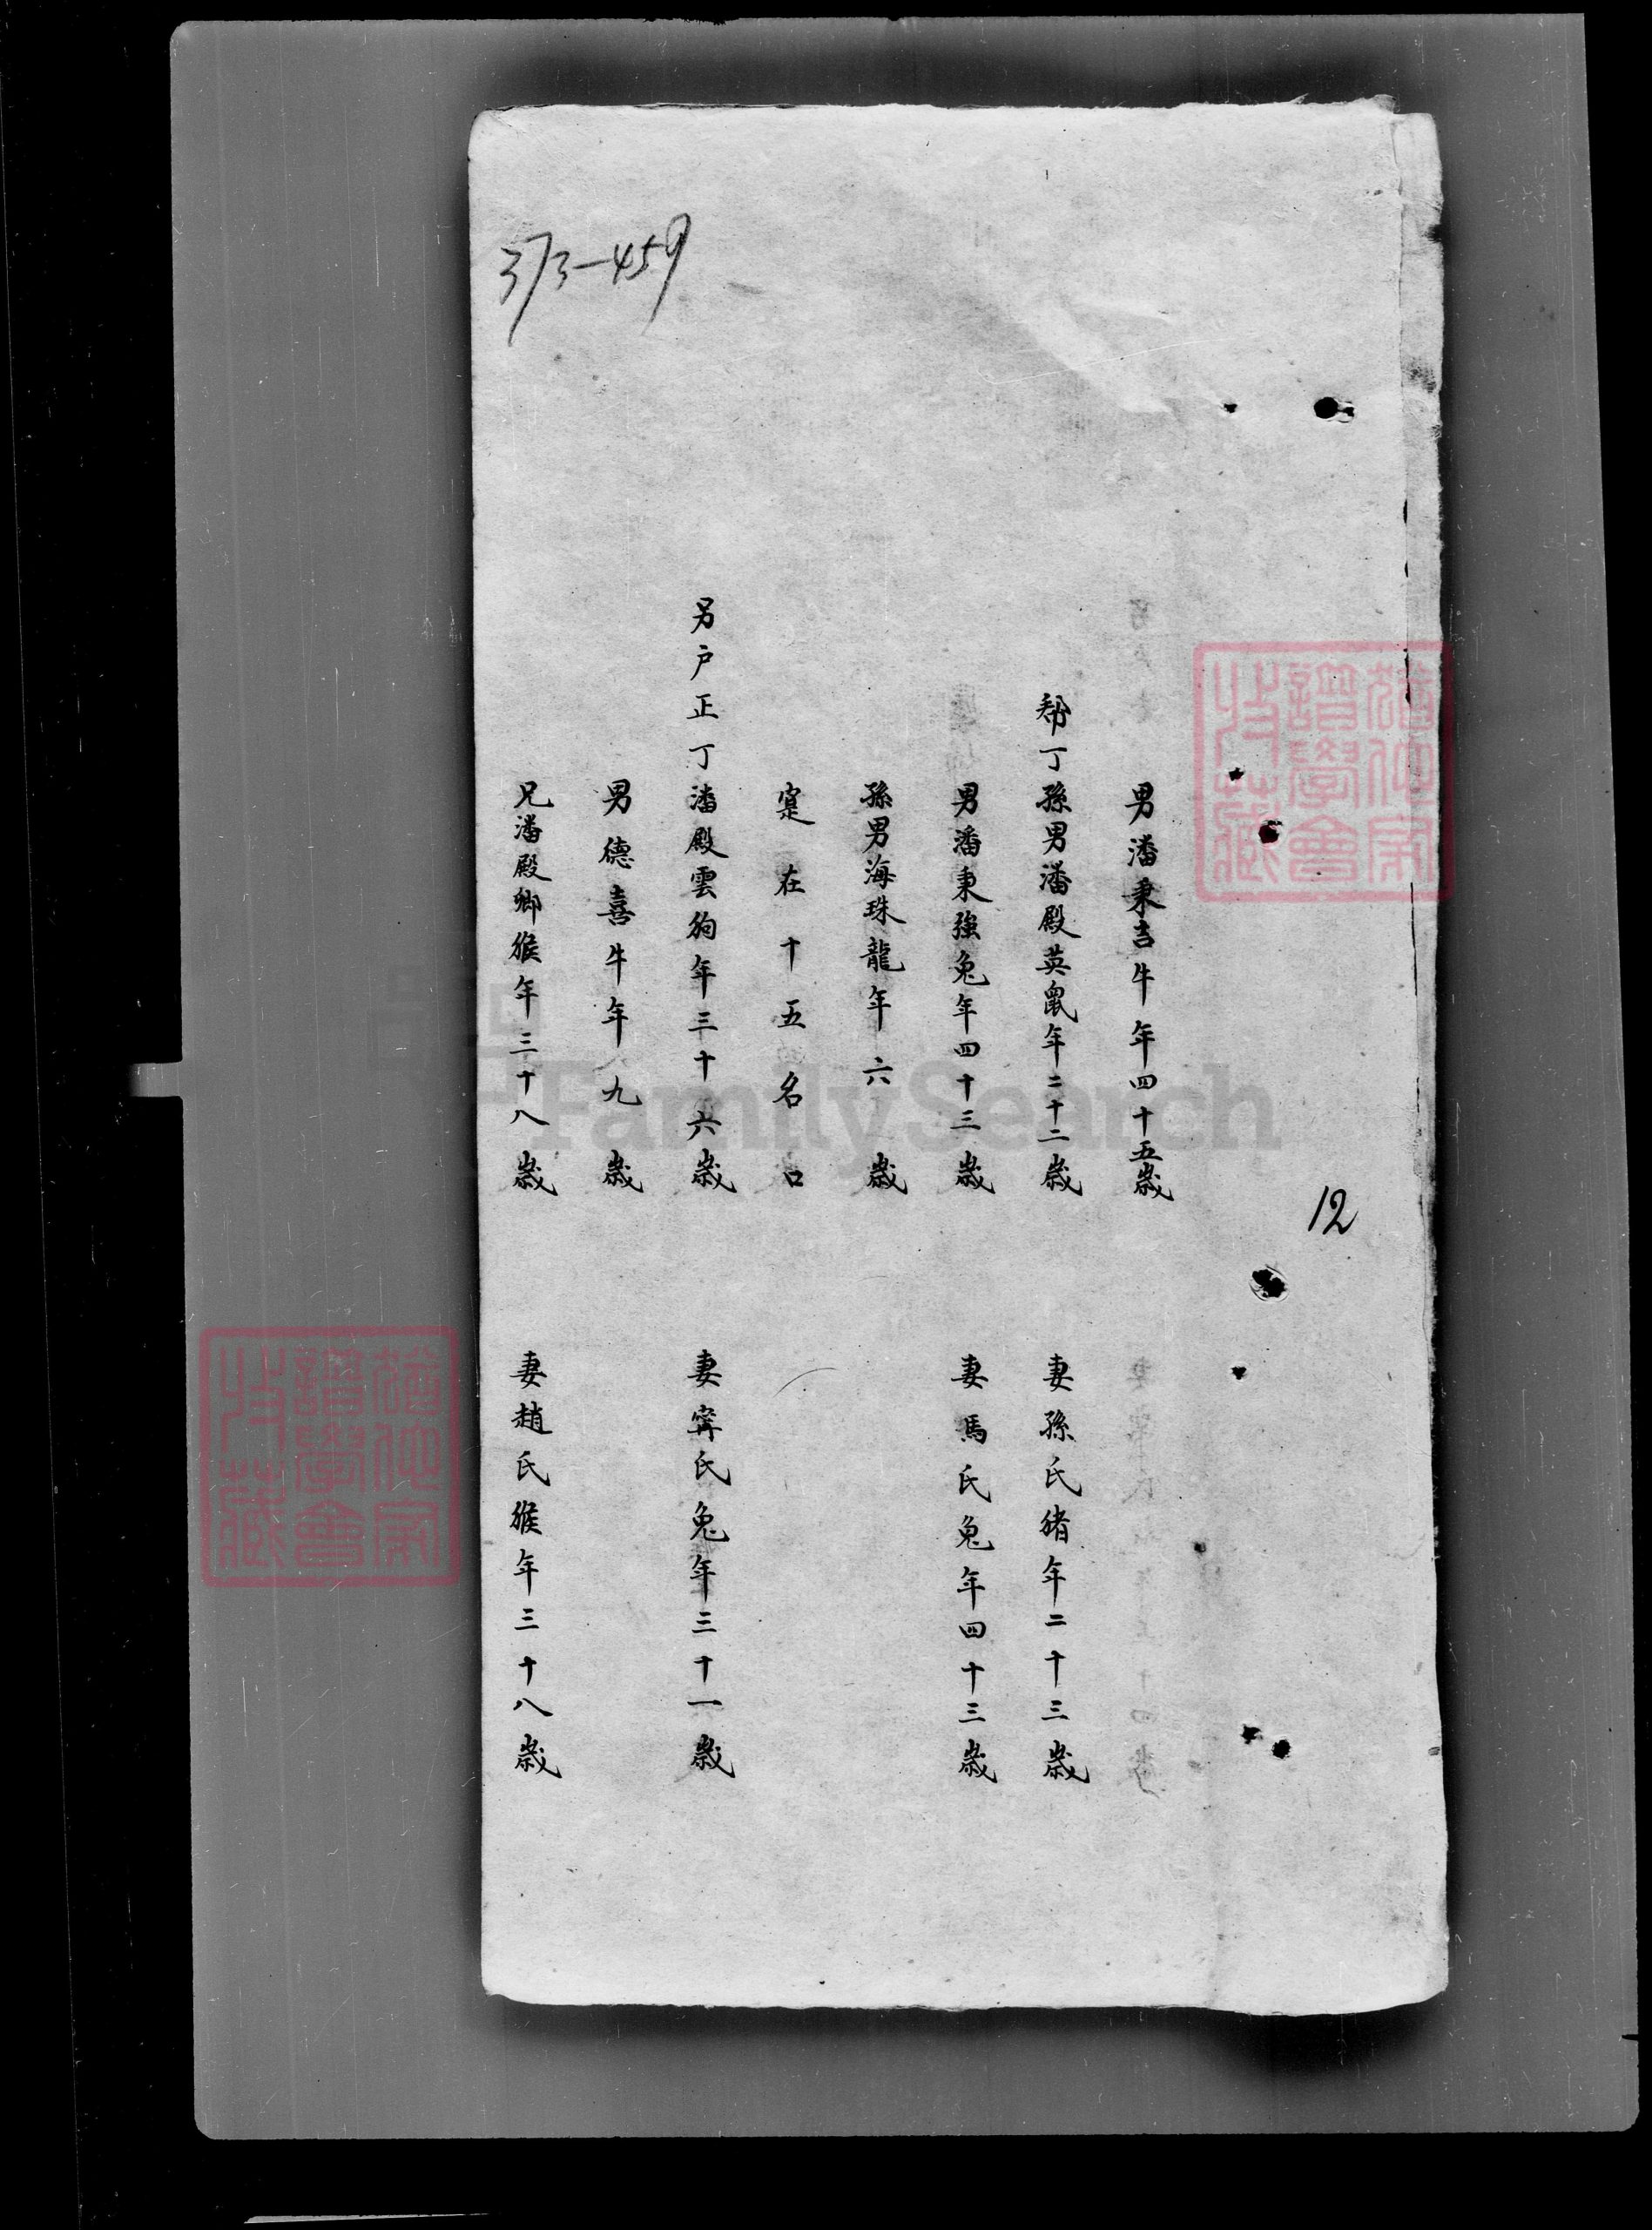 男潘秉吉牛年四十五歲
幇丁孫男潘殿英鼠年二十二歲
妻孫氏猪年二十三歲
男潘秉強兔年四十三歲
妻馬氏兔年四十三歲
孫男海珠龍年六歲
寔在十五名口
另户正丁潘殿雲狗年三十六歲
妻甯氏兔年三十一歲
男德喜牛年九歲
兄潘殿卿猴年三十八歲
妻趙氏猴年三十八歲
373-459
12
FamilySearch
譜學會